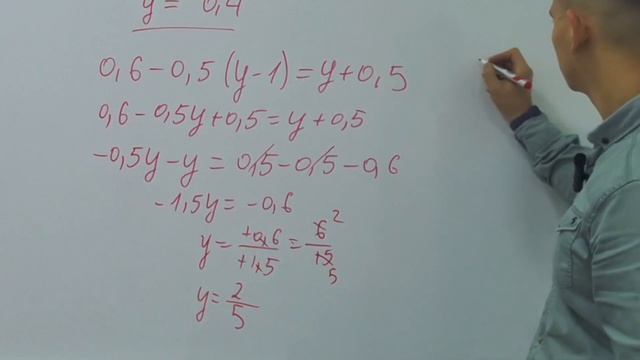 y = 0,4
0,6 - 0,5 (y - 1) = y + 0,5
0,6 - 0,5y + 0,5 = y + 0,5
-0,5y - y = 0,5 - 0,5 - 0,6
-1,5y = -0,6
y = +0,6/+1,5 = 6/15 2/5
y = 2/5